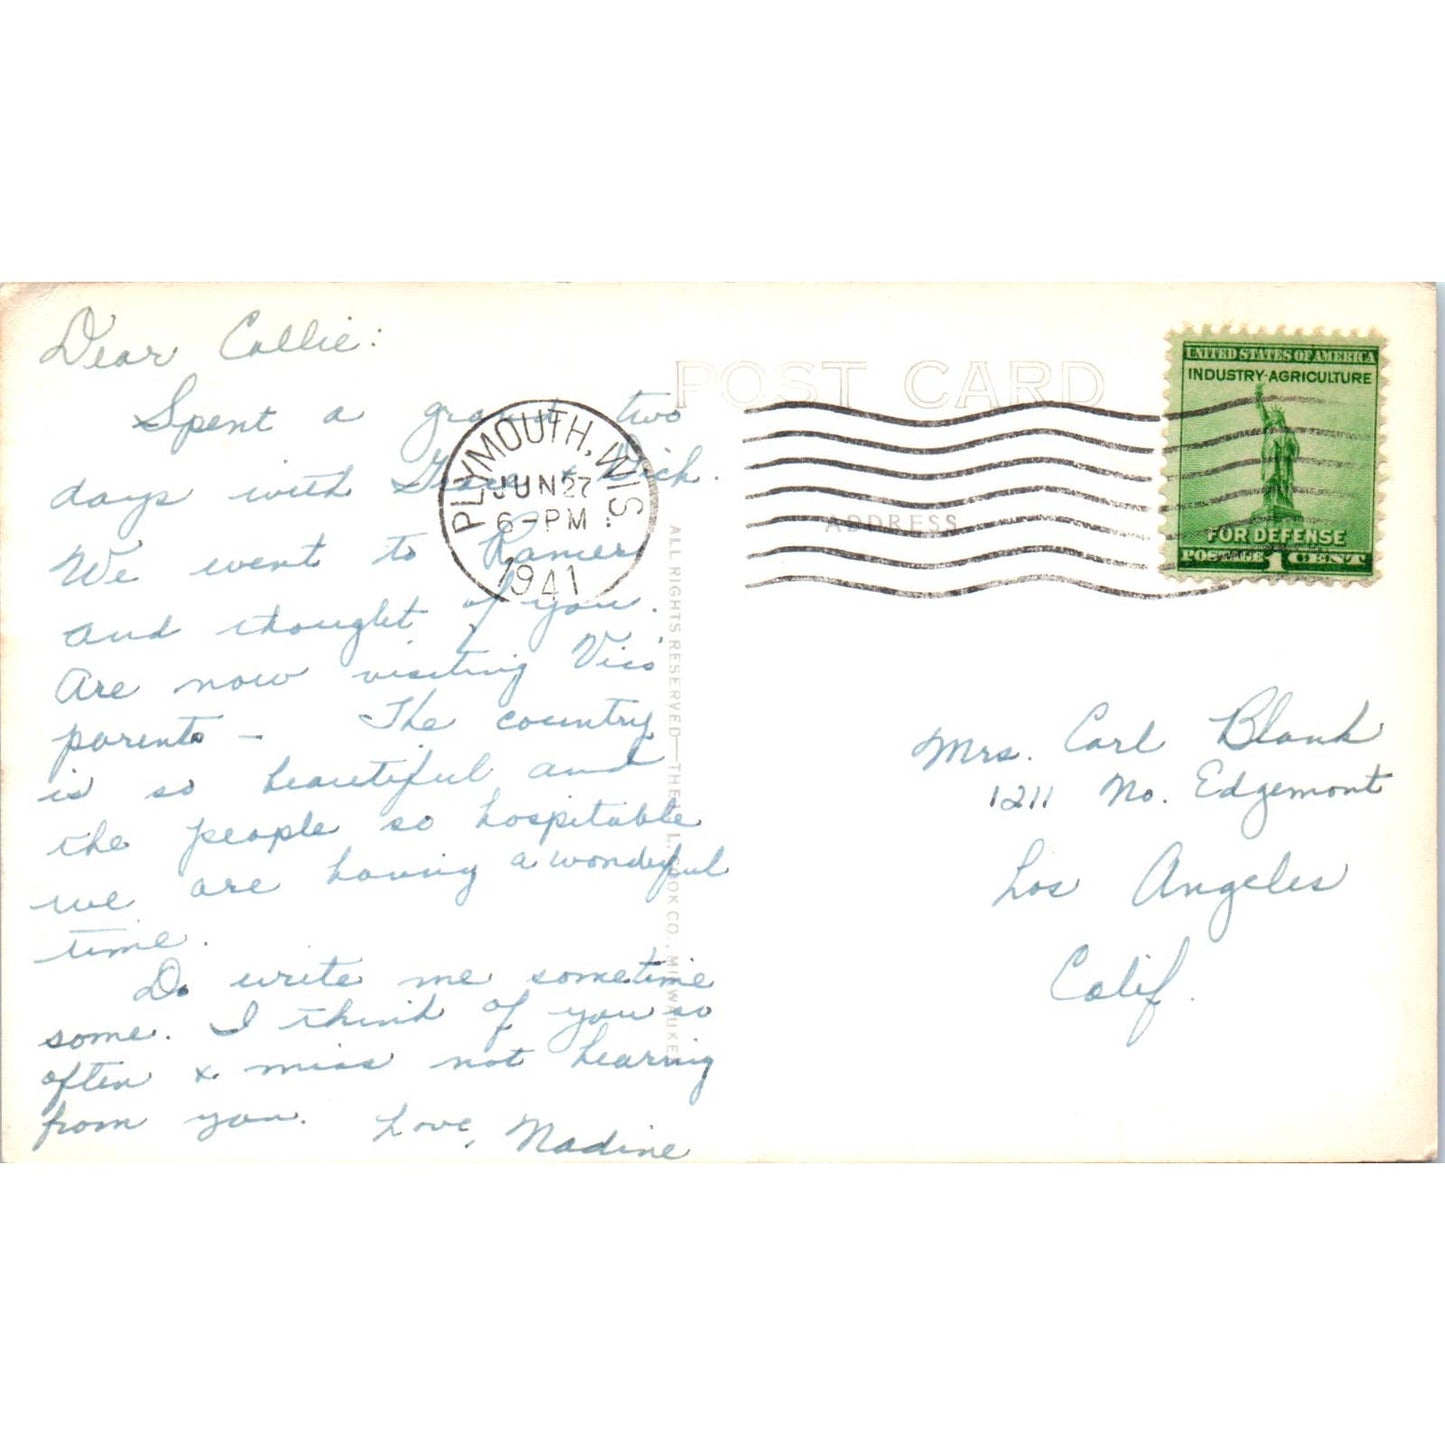 Dear Callie:
Spent a grand two
days with & Dick.
We went to
and thought of you.
Are now visiting Vic's
parents - The country
is so beautiful and
the people so hospitable
we are having a wonderful
time.
Do write me sometime
some. I think of you so
often & miss not hearing
from you. Love, Nadine
POST CARD
PLYMOUTH, WIS.
JUN 27
6-PM
1941
ADDRESS
ALL RIGHTS RESERVED—THE L. L. COOK CO., MILWAUKEE
UNITED STATES OF AMERICA
INDUSTRY·AGRICULTURE
FOR DEFENSE
POSTAGE 1 CENT
Mrs. Carl Blank
1211 No. Edgemont
Los Angeles
Calif.